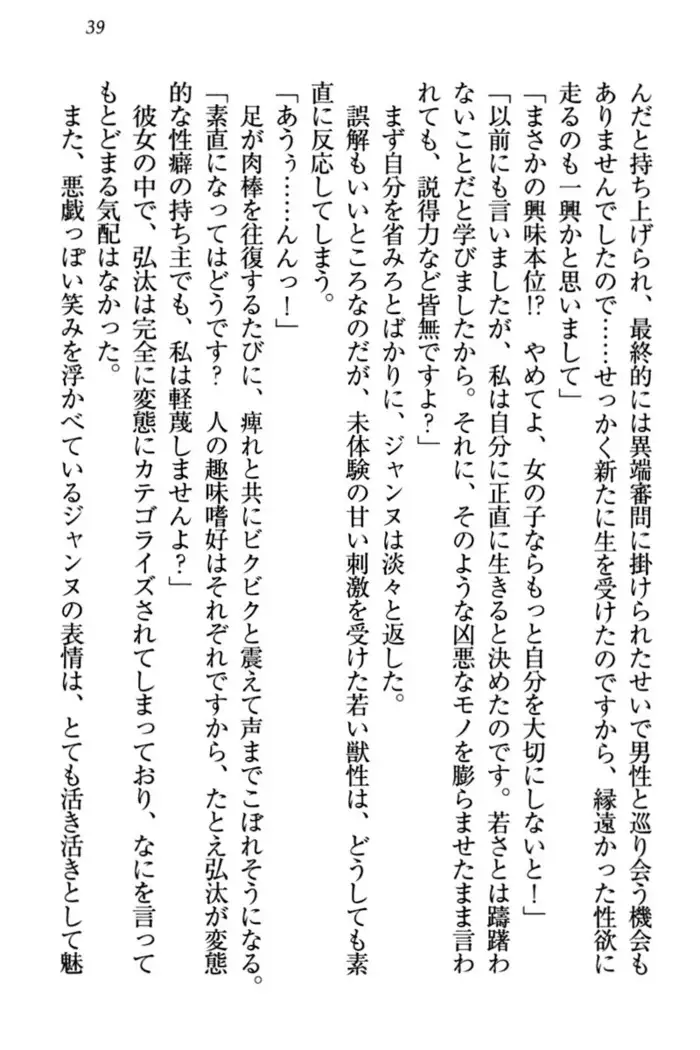 39
んだと持ち上げられ、最終的には異端審問に掛けられたせいで男性と巡り会う機会も
ありませんでしたので……せっかく新たに生を受けたのですから、縁遠かった性欲に
走るのも一興かと思いまして」
「まさかの興味本位!?　やめてよ、女の子ならもっと自分を大切にしないと！」
「以前にも言いましたが、私は自分に正直に生きると決めたのです。若さとは躊躇わ
ないことだと学びましたから。それに、そのような凶悪なモノを膨らませたまま言わ
れても、説得力など皆無ですよ？」
まず自分を省みろとばかりに、ジャンヌは淡々と返した。
誤解もいいところなのだが、未体験の甘い刺激を受けた若い獣性は、どうしても素
直に反応してしまう。
「あうぅ……んんっ！」
足が肉棒を往復するたびに、痺れと共にビクビクと震えて声までこぼれそうになる。
「素直になってはどうです？　人の趣味嗜好はそれぞれですから、たとえ弘汰が変態
的な性癖の持ち主でも、私は軽蔑しませんよ？」
彼女の中で、弘汰は完全に変態にカテゴライズされてしまっており、なにを言って
もとどまる気配はなかった。
また、悪戯っぽい笑みを浮かべているジャンヌの表情は、とても活き活きとして魅